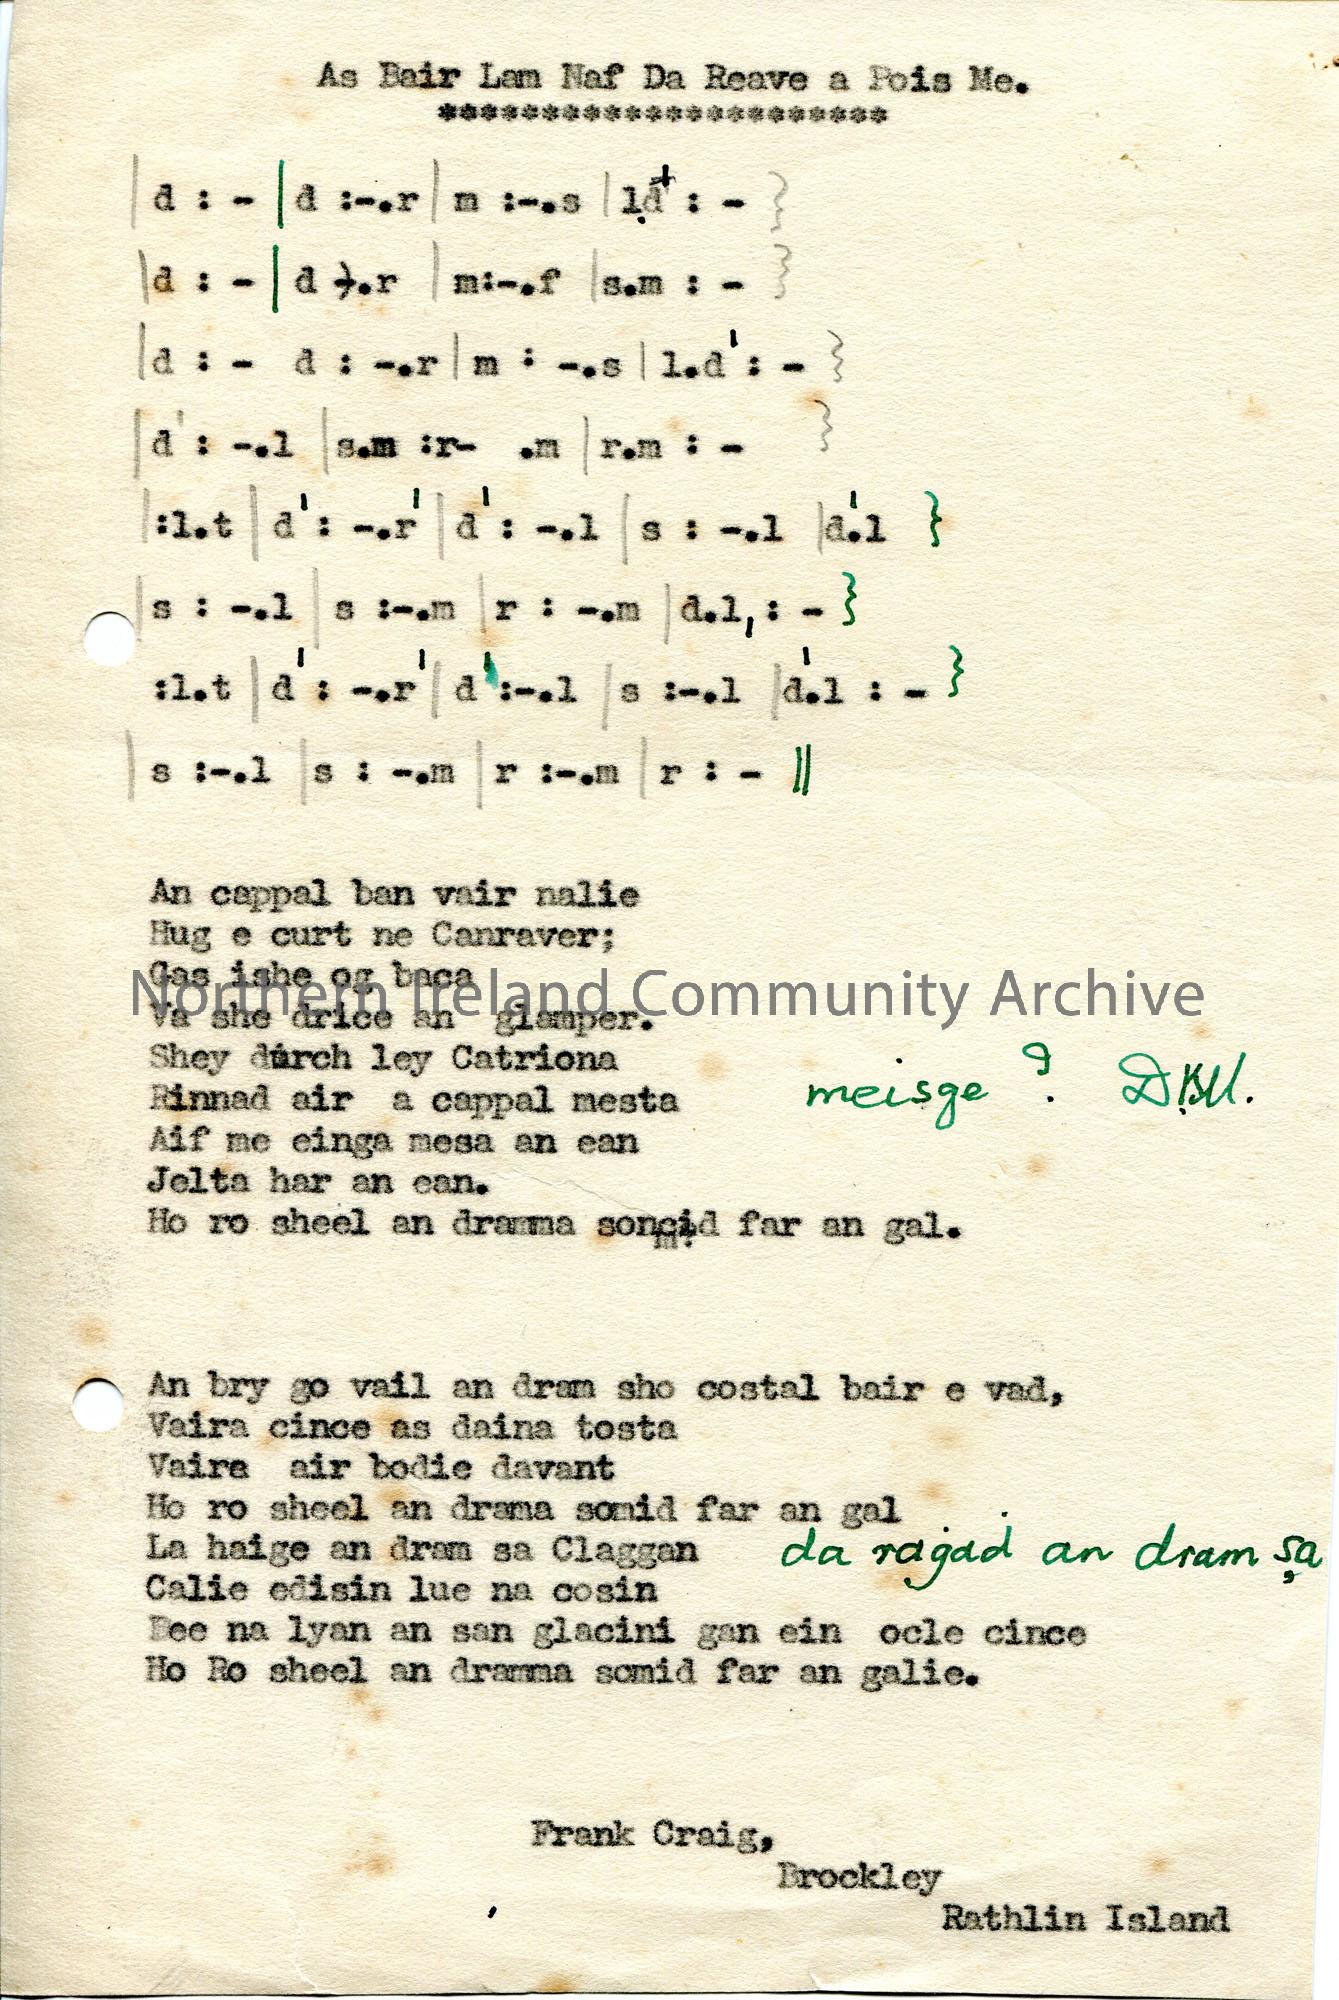 As Bair Lam Naf Da Reave a Pois Me.
**********************
| d : - | d :-.r | m :-.s | l.d' : - }
| d : - | d :-.r | m:-.f | s.m : - }
| d : - d : -.r | m : -.s | l.d' : - }
| d' : -.l | s.m :r- .m | r.m : - }
| :l.t | d' : -.r' | d' : -.l | s : -.l | d'.l }
| s : -.l | s :-.m | r : -.m | d.l, : - }
:l.t | d' : -.r' | d' :-.l | s :-.l | d'.l : - }
| s :-.l | s : -.m | r :-.m | r : - ||
An cappal ban vair nalie
Hug e curt ne Canraver;
Gas ishe og baca
Va she drice an glamper.
Shey durch ley Catriona
Rinnad air a cappal mesta meisge ? DBM.
Aif me einga mesa an ean
Jelta har an ean.
Ho ro sheel an dramma soncid far an gal.
m?
An bry go vail an dram sho costal bair e vad,
Vaira cince as daina tosta
Vaira air bodie davant
Ho ro sheel an drama somid far an gal
La haige an dram sa Claggan da ragad an dram sa
Calie edisin lue na cosin
Bee na lyan an san glacini gan ein ocle cince
Ho Ro sheel an dramma somid far an galie.
Frank Craig,
Brockley
Rathlin Island
Northern Ireland Community Archive